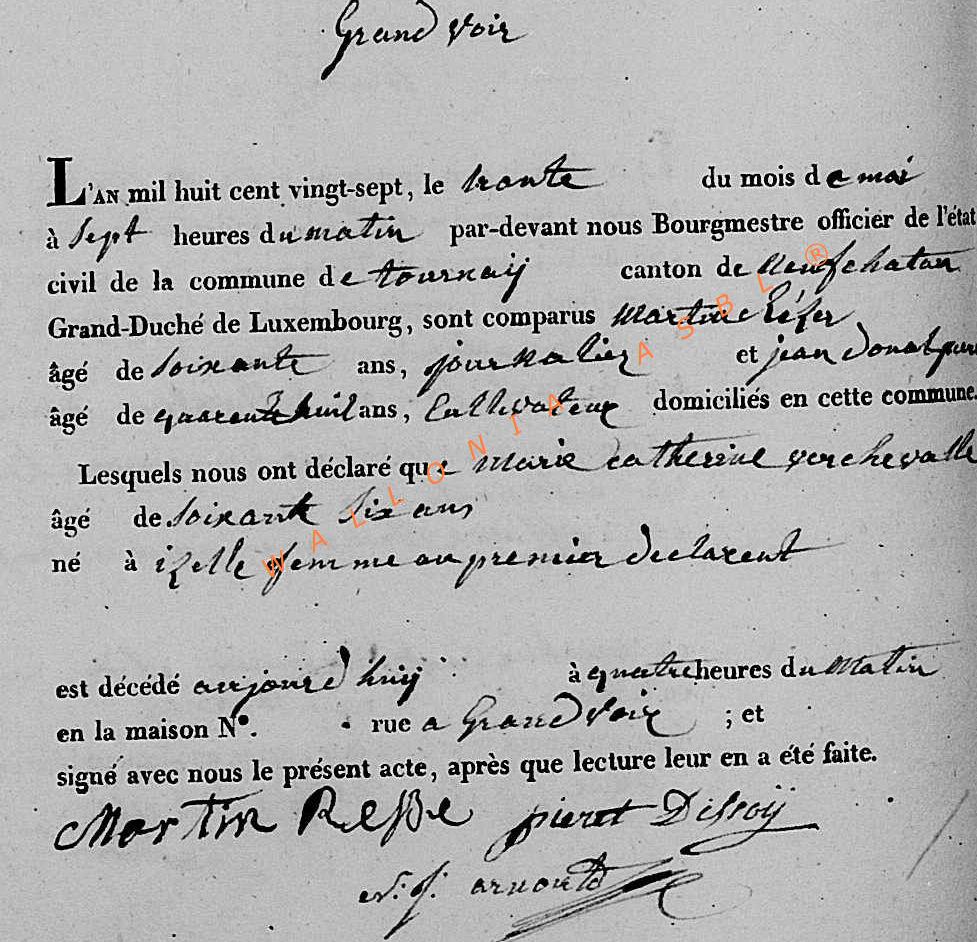 Grand voir
L'AN mil huit cent vingt-sept, le trante du mois de mai
à sept heures du matin par-devant nous Bourgmestre officier de l'état
civil de la commune de tournaÿ canton de neufchatau
Grand-Duché de Luxembourg, sont comparus Martin
âgé de soixante ans, journalier et jean donat
âgé de quarente huit ans, Cultivateur domiciliés en cette commune.
Lesquels nous ont déclaré que Marie catherine verchevalle
âgé de soixante six ans
né à izelle femme au premier declarent
est décédé aujourd huÿ à quatre heures du Matin
en la maison N°. rue a Grand voir ; et
signé avec nous le présent acte, après que lecture leur en a été faite.
Martin pieret Dessoÿ
N: j. arnould
WALLONIA ASBL ®